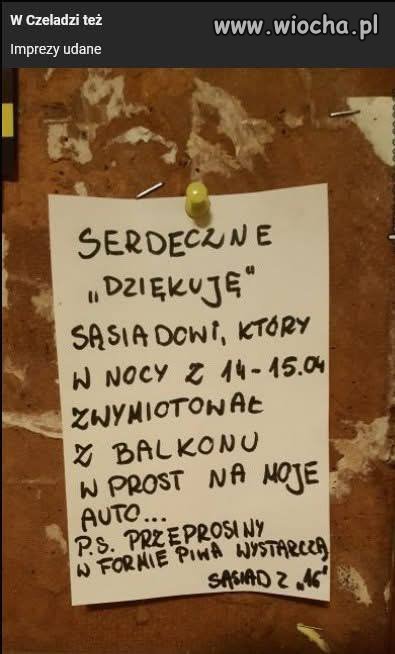 W Czeladzi też
www.wiocha.pl
Imprezy udane
SERDECZNE
„DZIĘKUJĘ"
SĄSIADOWI, KTÓRY
W NOCY Z 14-15.04
ZWYMIOTOWAŁ
Z BALKONU
W PROST NA MOJE
AUTO...
P.S. PRZEPROSINY
W FORMIE PIWA WYSTARCZĄ
SĄSIAD Z „16"
www.wiocha.pl